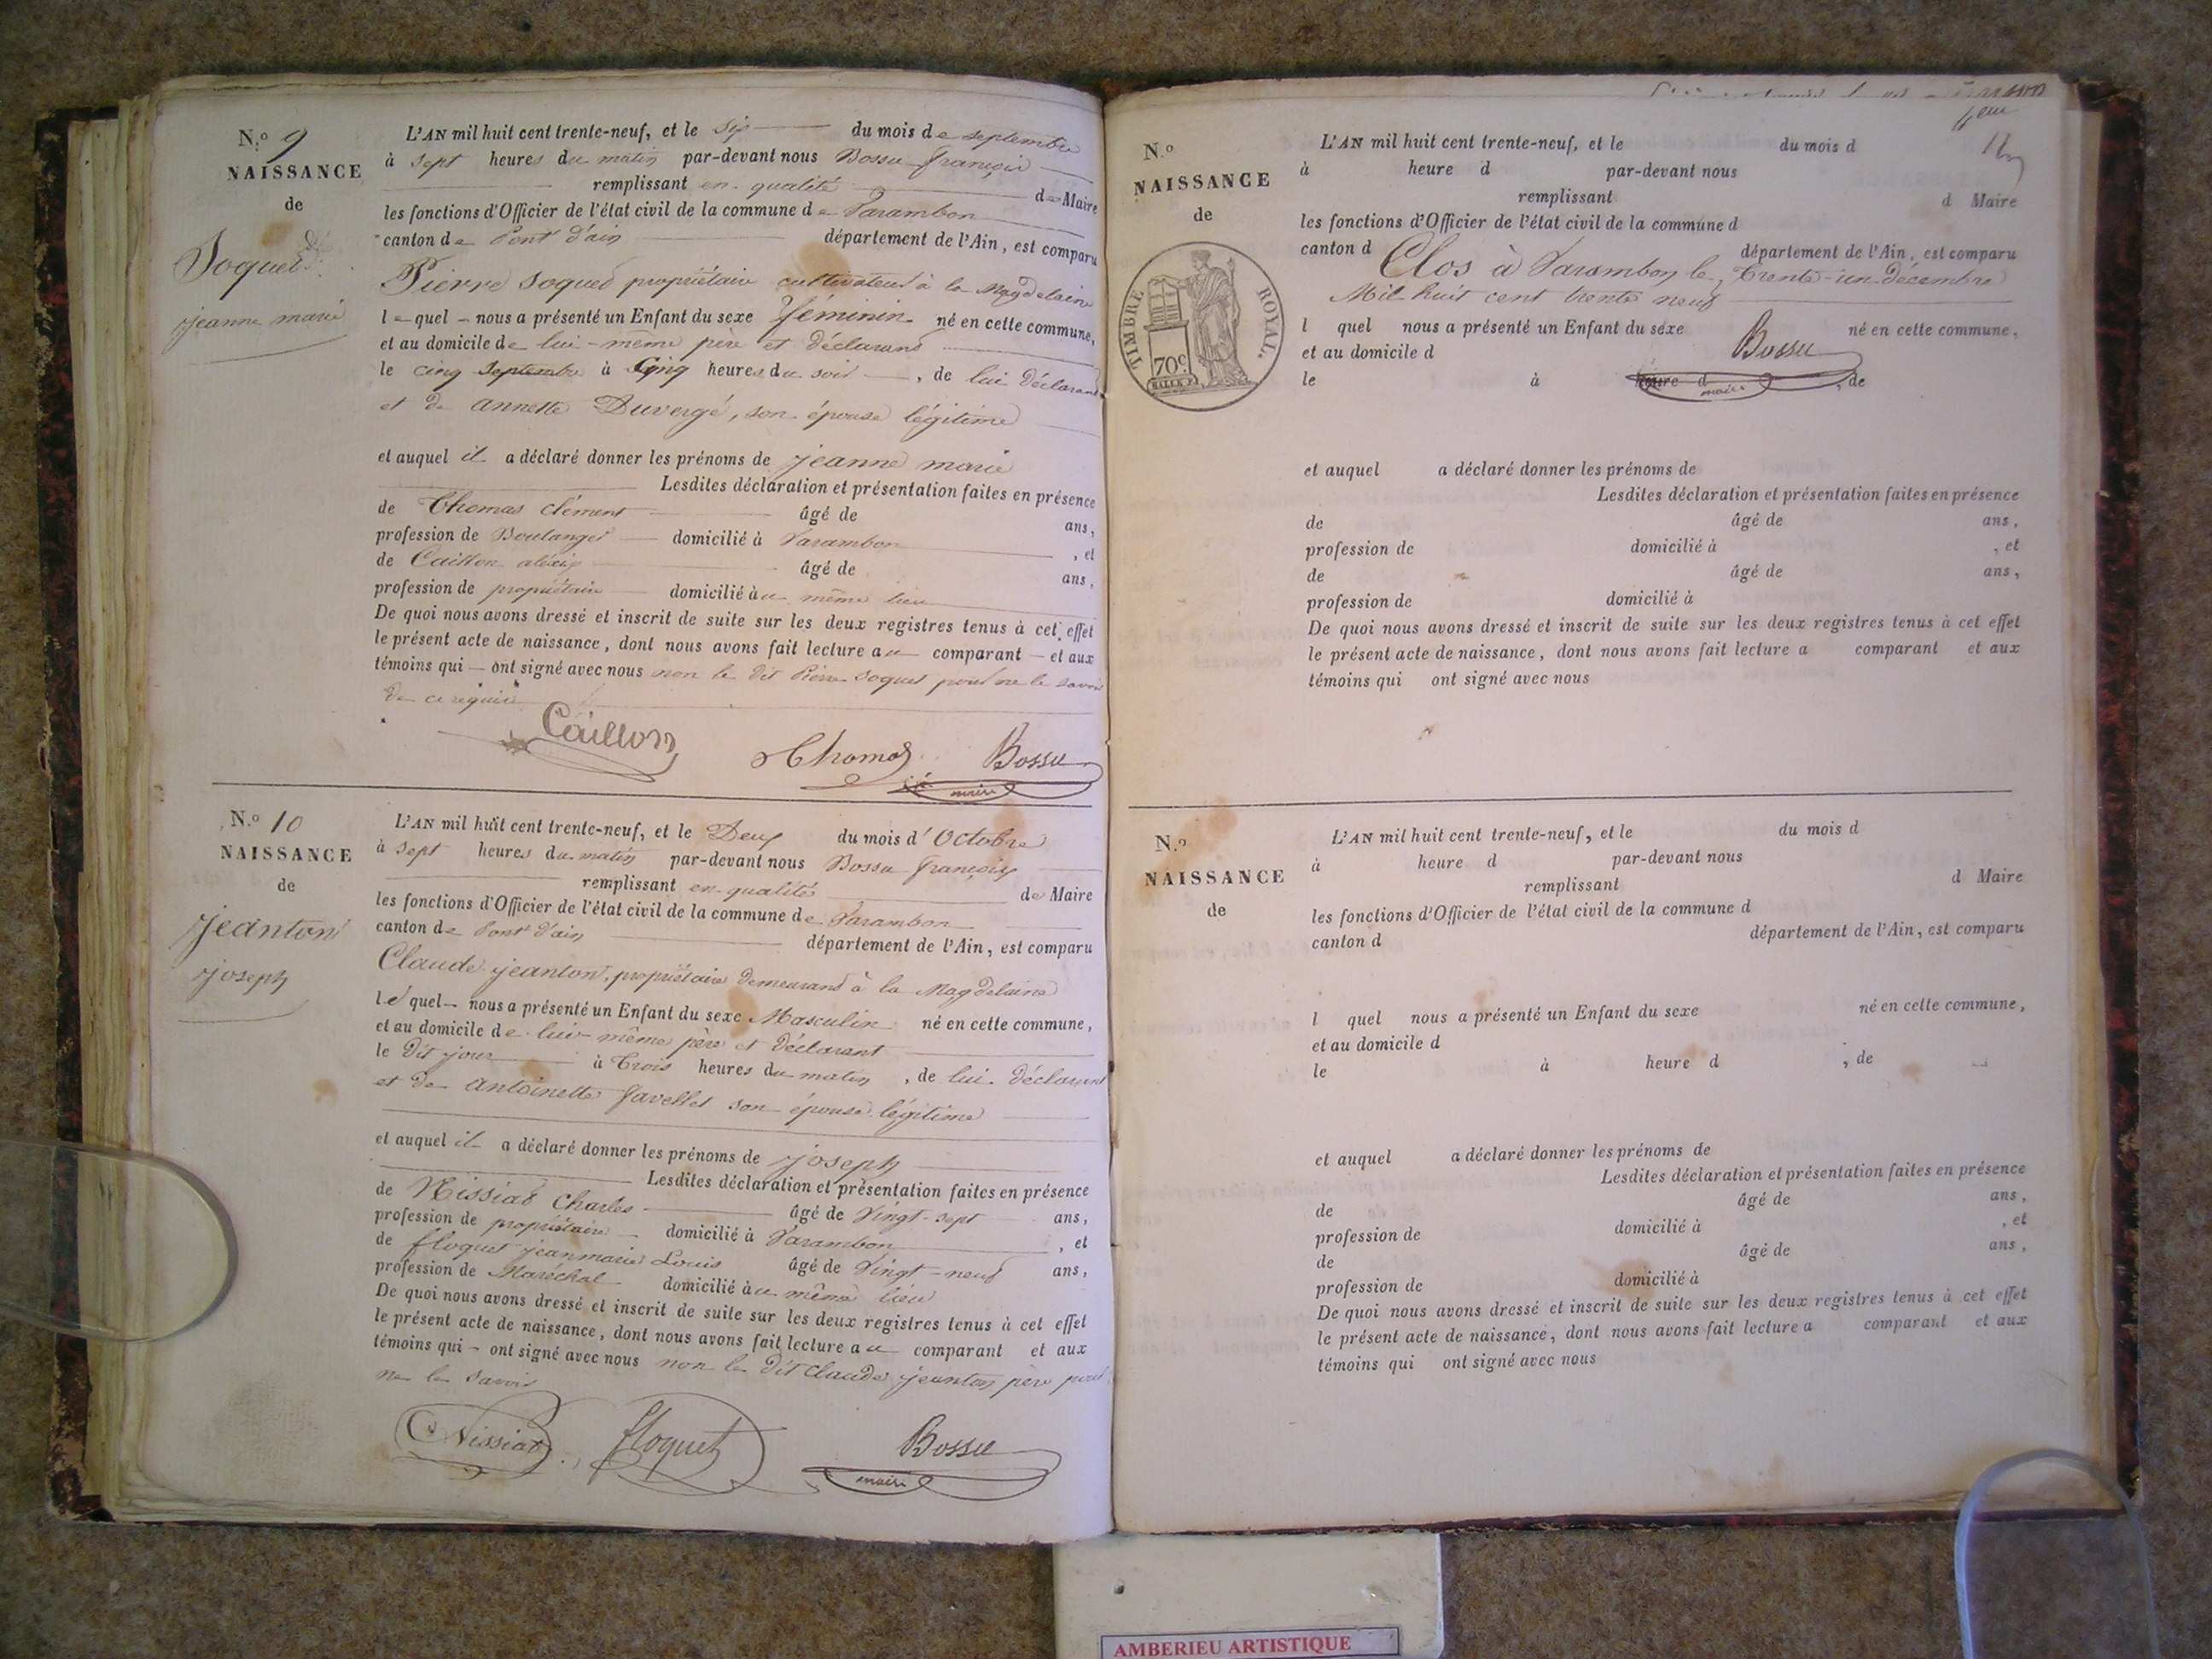 N.º 9
NAISSANCE
de
Soquet
jeanne marie
L'AN mil huit cent trente-neuf, et le six du mois de septembre
à sept heures du matin par-devant nous Bossu françois
remplissant en qualité de Maire
les fonctions d'Officier de l'état civil de la commune de Varambon
canton de Pont d'ain département de l'Ain, est comparu
Pierre Soquet propriétaire cultivateur à la Magdelaine
le quel nous a présenté un Enfant du sexe féminin né en cette commune,
et au domicile de lui-même père et déclarant
le cinq Septembre à Cinq heures du soir, de lui déclarant
et de annette Duvergé, son épouse légitime
et auquel il a déclaré donner les prénoms de jeanne marie
Lesdites déclaration et présentation faites en présence
de Thomas clément âgé de ans,
profession de Boulanger domicilié à Varambon, et
de Caillon aléxis âgé de ans,
profession de propriétaire domicilié au même lieu
De quoi nous avons dressé et inscrit de suite sur les deux registres tenus à cet effet
le présent acte de naissance, dont nous avons fait lecture au comparant et aux
témoins qui ont signé avec nous non le dit Pierre Soquet pour ne le savoir
de ce requis
Caillon Thomas Bossu
maire
N.º 10
NAISSANCE
de
jeanton
joseph
L'AN mil huit cent trente-neuf, et le Deux du mois d'Octobre
à sept heures du matin par-devant nous Bossu françois
remplissant en qualité de Maire
les fonctions d'Officier de l'état civil de la commune de Varambon
canton de Pont d'ain département de l'Ain, est comparu
Claude jeanton, propriétaire demeurant à la Magdelaine
le quel nous a présenté un Enfant du sexe Masculin né en cette commune,
et au domicile de lui-même père et déclarant
le dit jour à Trois heures du matin, de lui déclarant
et de antoinette favellet son épouse légitime
et auquel il a déclaré donner les prénoms de joseph
Lesdites déclaration et présentation faites en présence
de Nissiat Charles âgé de Vingt-sept ans,
profession de propriétaire domicilié à Varambon, et
de floquet jeanmarie Louis âgé de Vingt-neuf ans,
profession de Maréchal domicilié au même lieu
De quoi nous avons dressé et inscrit de suite sur les deux registres tenus à cet effet
le présent acte de naissance, dont nous avons fait lecture au comparant et aux
témoins qui ont signé avec nous non le dit Claude jeanton père pour
ne le savoir
Nissiat floquet Bossu
maire
N.º
NAISSANCE
de
TIMBRE ROYAL.
70c
L'AN mil huit cent trente-neuf, et le du mois d
à heure d par-devant nous
remplissant d Maire
les fonctions d'Officier de l'état civil de la commune d
canton d département de l'Ain, est comparu
Clos à Varambon le Trente-un Décembre
Mil huit cent trente neuf
l quel nous a présenté un Enfant du sexe né en cette commune,
et au domicile d
Bossu
le à heure d, de
maire
et auquel a déclaré donner les prénoms de
Lesdites déclaration et présentation faites en présence
de âgé de ans,
profession de domicilié à , et
de âgé de ans,
profession de domicilié à
De quoi nous avons dressé et inscrit de suite sur les deux registres tenus à cet effet
le présent acte de naissance, dont nous avons fait lecture a comparant et aux
témoins qui ont signé avec nous
N.º
NAISSANCE
de
L'AN mil huit cent trente-neuf, et le du mois d
à heure d par-devant nous
remplissant d Maire
les fonctions d'Officier de l'état civil de la commune d
canton d département de l'Ain, est comparu
l quel nous a présenté un Enfant du sexe né en cette commune,
et au domicile d
le à heure d , de
et auquel a déclaré donner les prénoms de
Lesdites déclaration et présentation faites en présence
de âgé de ans,
profession de domicilié à , et
de âgé de ans,
profession de domicilié à
De quoi nous avons dressé et inscrit de suite sur les deux registres tenus à cet effet
le présent acte de naissance, dont nous avons fait lecture a comparant et aux
témoins qui ont signé avec nous
AMBERIEU ARTISTIQUE